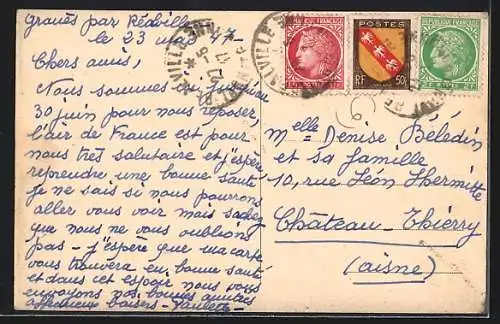 Graves par Réalville
le 23 mai 47
Chers amis,
Nous sommes ici jusqu'au
30 juin pour nous reposer,
l'air de France est pour
nous très salutaire et j'espère
reprendre une bonne santé
je ne sais si nous pourrons
aller vous voir mais sachez
que nous ne vous oublions
pas - j'espère que ma carte
vous trouvera en bonne santé
et dans cet espoir nous vous
envoyons nos bonnes amitiés
affectueux baisers - Paulette -
POSTES
RF 50c
(6)
Melle Denise Bélédin
et sa famille
10, rue Léon Lhermitte
Château-Thierry
(aisne)